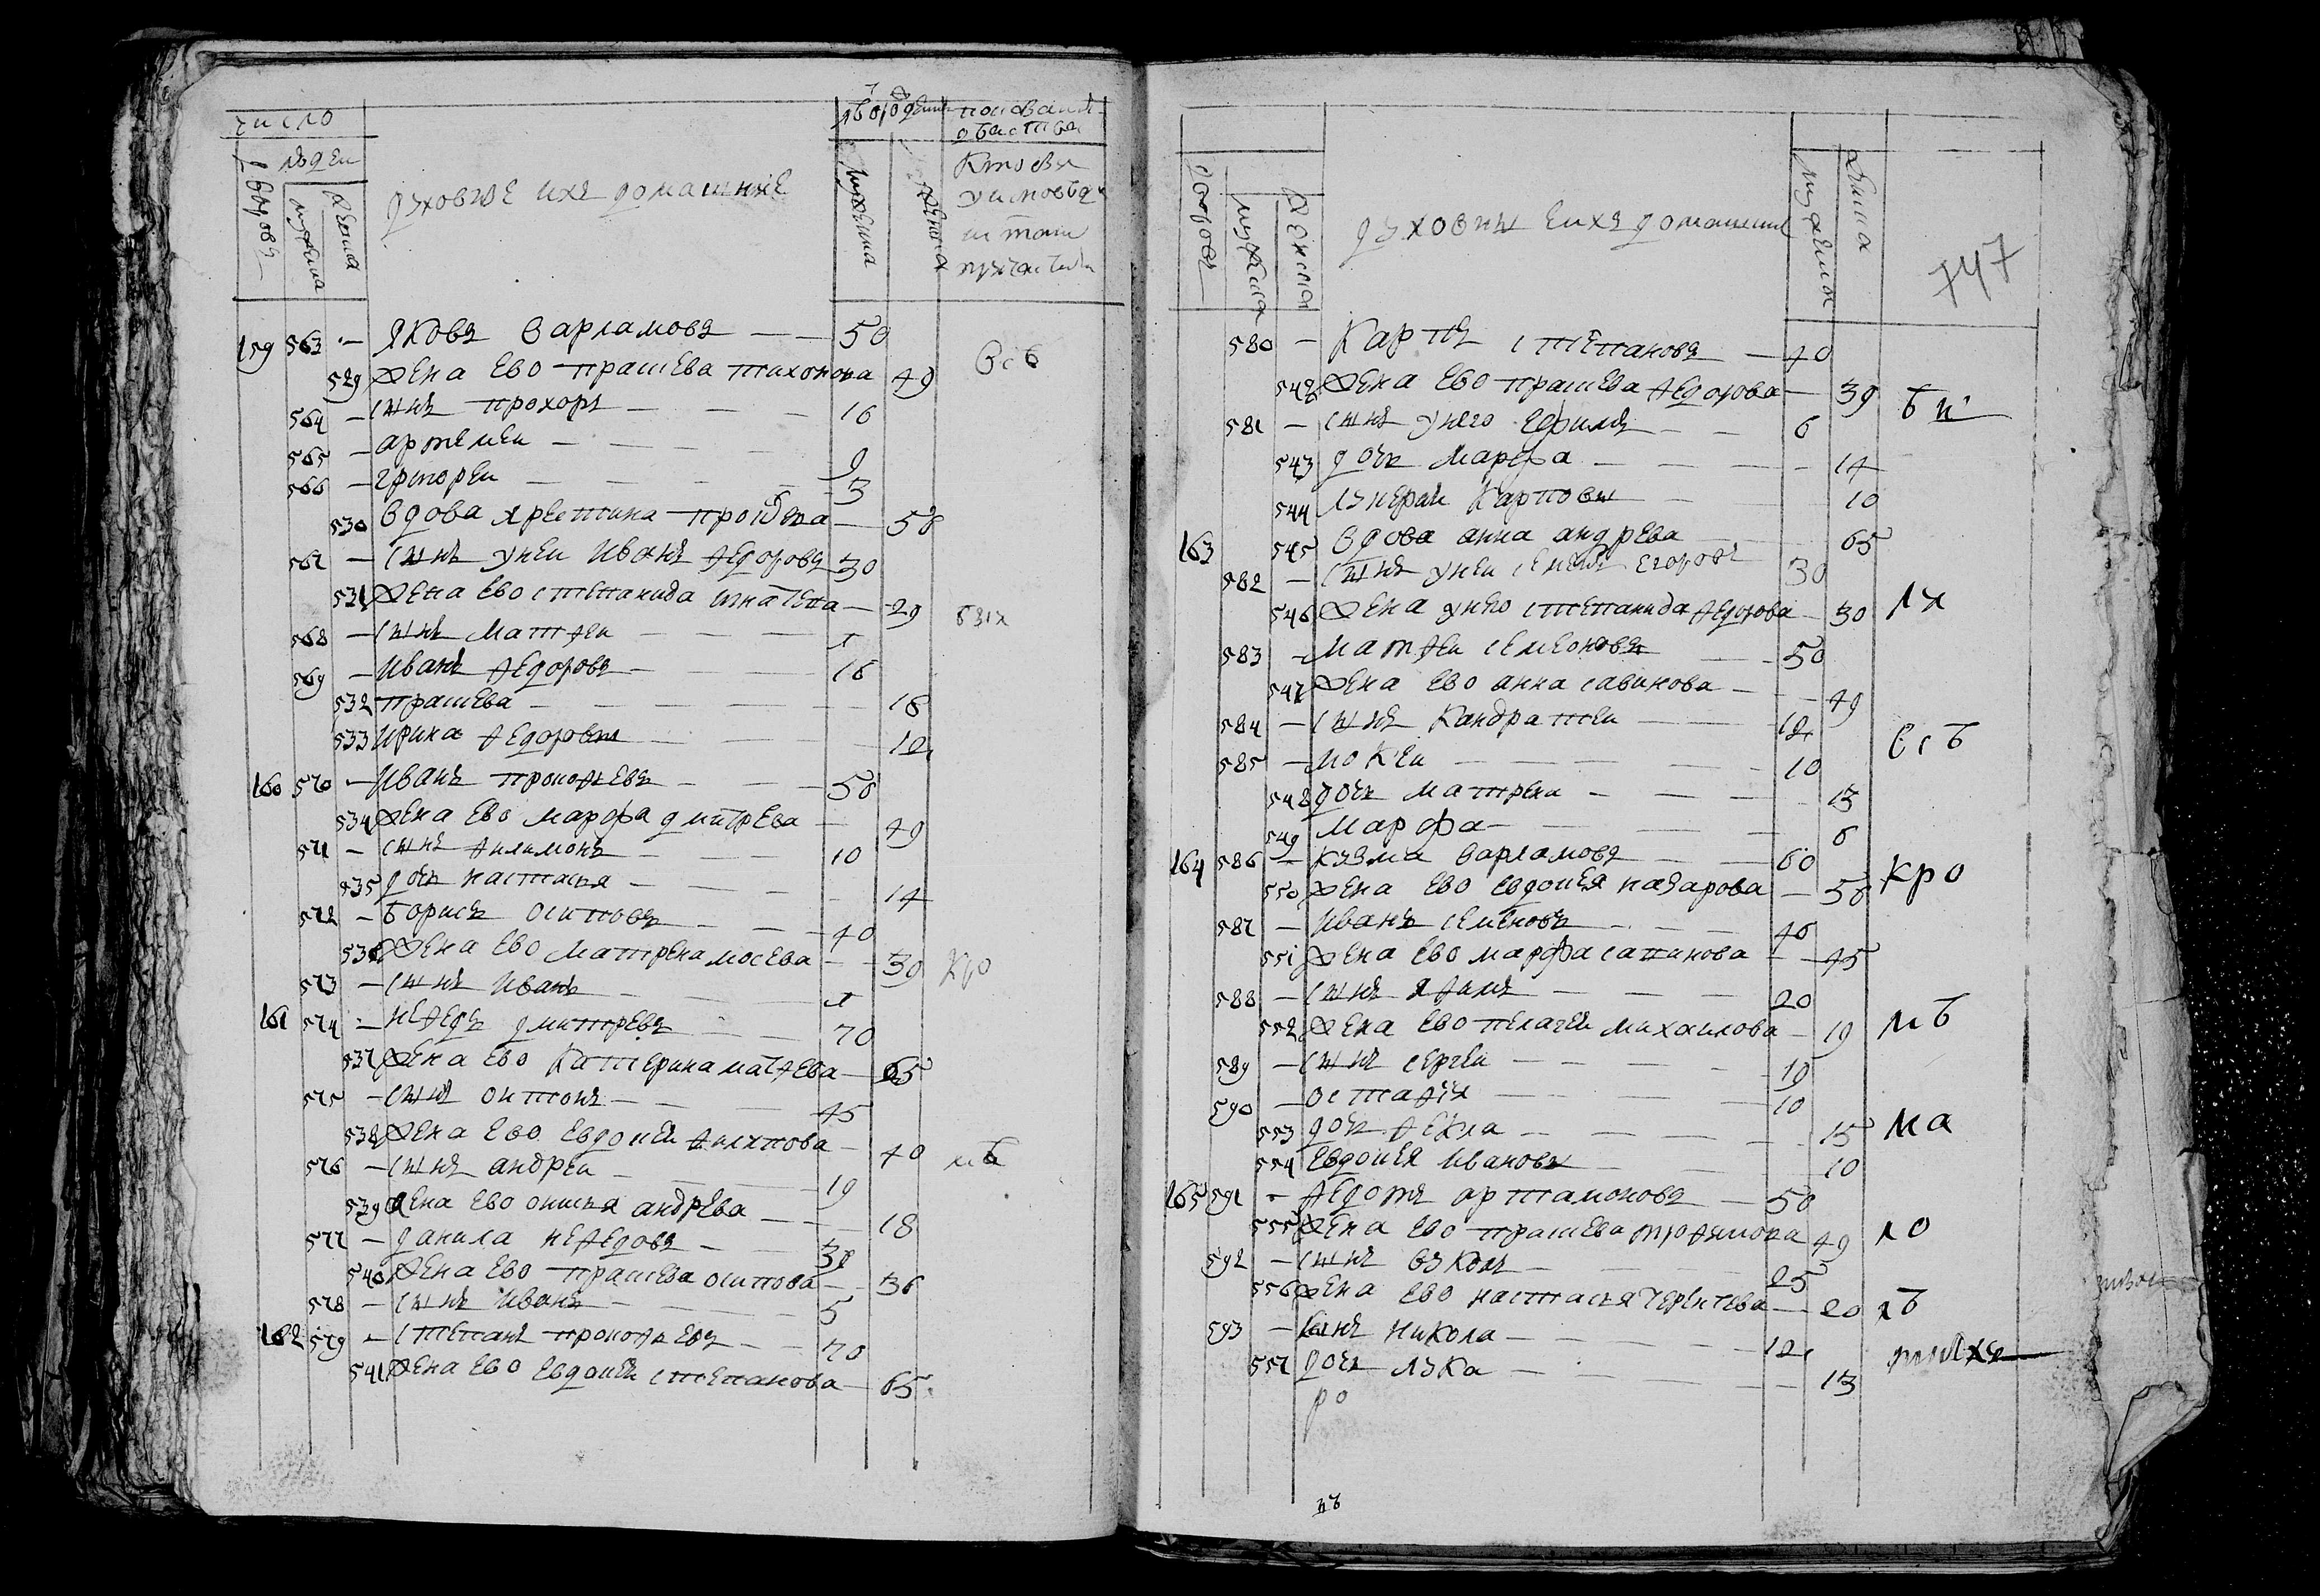 число
людеи
дворовъ
мужеска
женска
духовные ихъ домашние
мужеска
женска
показани
оваства
Кто бы
у исповѣд
и таи
причастия
159 563 — яковъ варламовъ — — 50
529 жена ево прасева тихонова 49 всѣ
564 — сынъ прохоръ — — — 16
565 — артемеи — — — 9
566 — григореи — — — 3
530 вдова хрестина — 58
567 — сынъ унеи иванъ федоровъ 30
531 жена ево степанида игнатева — 29
568 — сынъ матфеи — — — 1
569 — иванъ федоровъ — — 16
532 прасева — — — 18
533 ирина федоровы — — 12
160 570 — иванъ прокофьевъ — — 58
534 жена ево марфа дмитрева — 49
571 — сынъ филимонъ — — 10
535 дочь настасья — — — 14
572 — борисъ осиповъ — — — 40
536 жена ево матрена мосева — — 30 кро
573 — сынъ иванъ — — 1
161 574 — нефедъ дмитревъ — — 70
537 жена ево катерина матфева — 65
575 — сынъ онтонъ — — — 45
538 жена ево евдокия филипова — 40 мѣ
576 — сынъ андреи — — — 19
539 жена ево онисья андрева — — 18
577 — данила нефедовъ — — 38
540 жена ево прасева осипова — 36
578 — сынъ иванъ — — 5
162 579 — степанъ прокофьевъ — — 70
541 жена ево евдокия степанова — 65
дворовъ
мужеска
женска
духовны ихъ домашни
мужеска
747
580 — карпъ степановъ — 40
542 жена ево прасева федорова — 39
581 — сынъ унего ефимъ — — 6
543 дочь марфа — — — 14
544 лукеръи карповы — — 10
163 545 вдова анна андрева — 65
582 — сынъ унеи семенъ егоровъ 30
546 жена унего степанида федорова — 30
583 — матфеи семеновъ — — 50
547 жена ево анна савинова — — 49
584 — сынъ кандратеи — — 12
585 — мокеи — — — 10 всѣ
548 дочь матрена — — — 13
549 марфа — — — 6
164 586 — кузма варламовъ — — 60 кро
550 жена ево евдокея назарова — 58
587 — иванъ семеновъ — — 46
551 жена ево марфа сапинова — 45
588 — сынъ яфимъ — — — 20
552 жена ево пелагеи михаилова — 19 мѣ
589 — сынъ сергеи — — — 19
590 — остафіи — — — 10
553 дочь фекла — — — 15 ма
554 евдокея ивановы — — 10
165 591 — федотъ артамоновъ — 50
555 жена ево прасева трофимова 49 ло
592 — сынъ вуколъ — — 25
556 жена ево настасья терентева — 20
593 — сынъ никола — — — 12
557 дочь лука — — — 13
ро